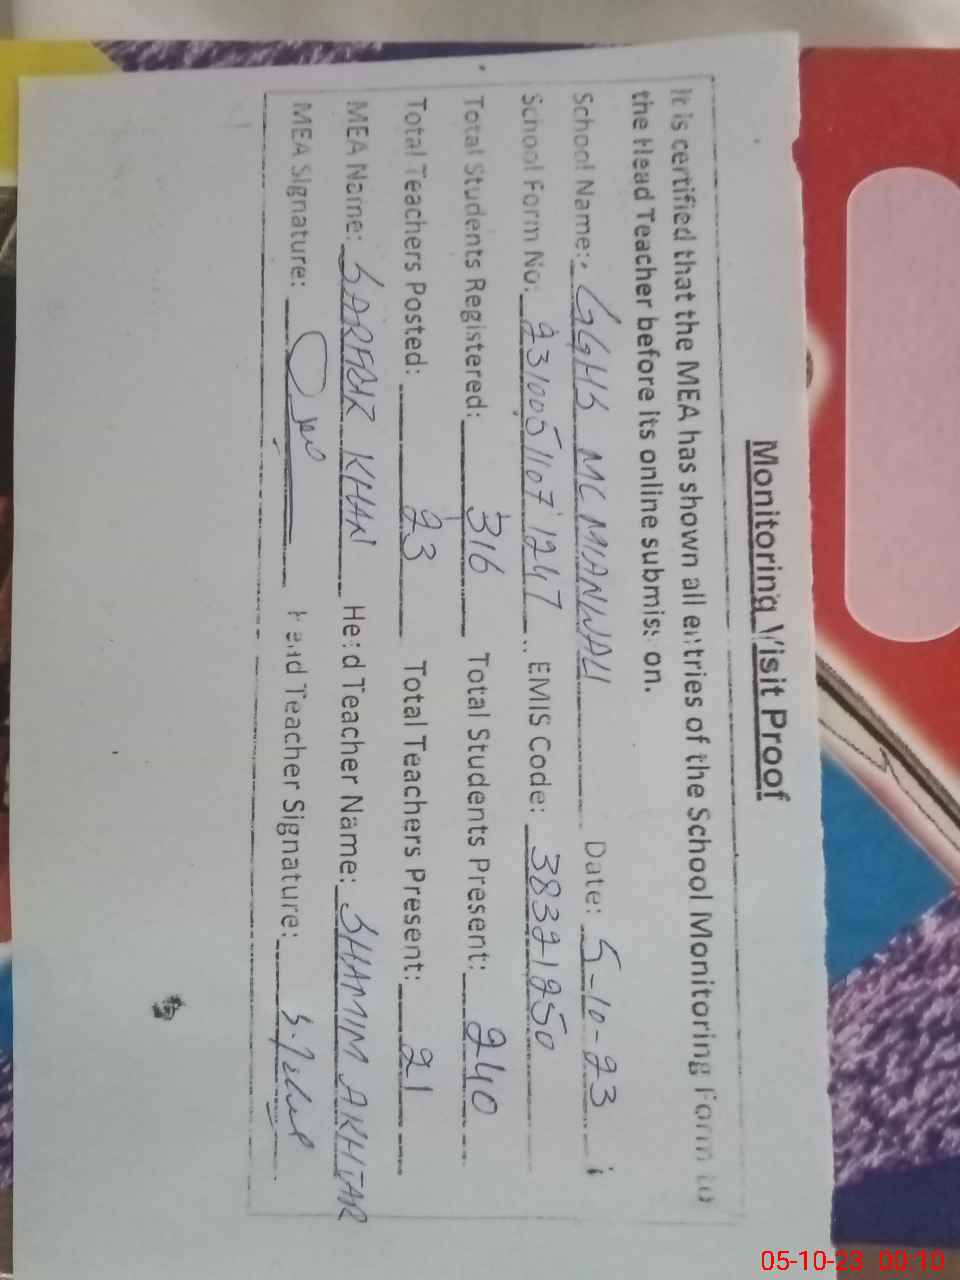 Monitoring Visit Proof
It is certified that the MEA has shown all entries of the School Monitoring Form to
the Head Teacher before its online submission.
School Name: GGHS MC MIANWALI Date: 5-10-23
School Form No: 23100511071247 EMIS Code: 38321250
Total Students Registered: 316 Total Students Present: 240
Total Teachers Posted: 23 Total Teachers Present: 21
MEA Name: SARFRAZ KHAN Head Teacher Name: SHAMIM AKHTAR
MEA Signature: Head Teacher Signature:
05-10-23 00:10